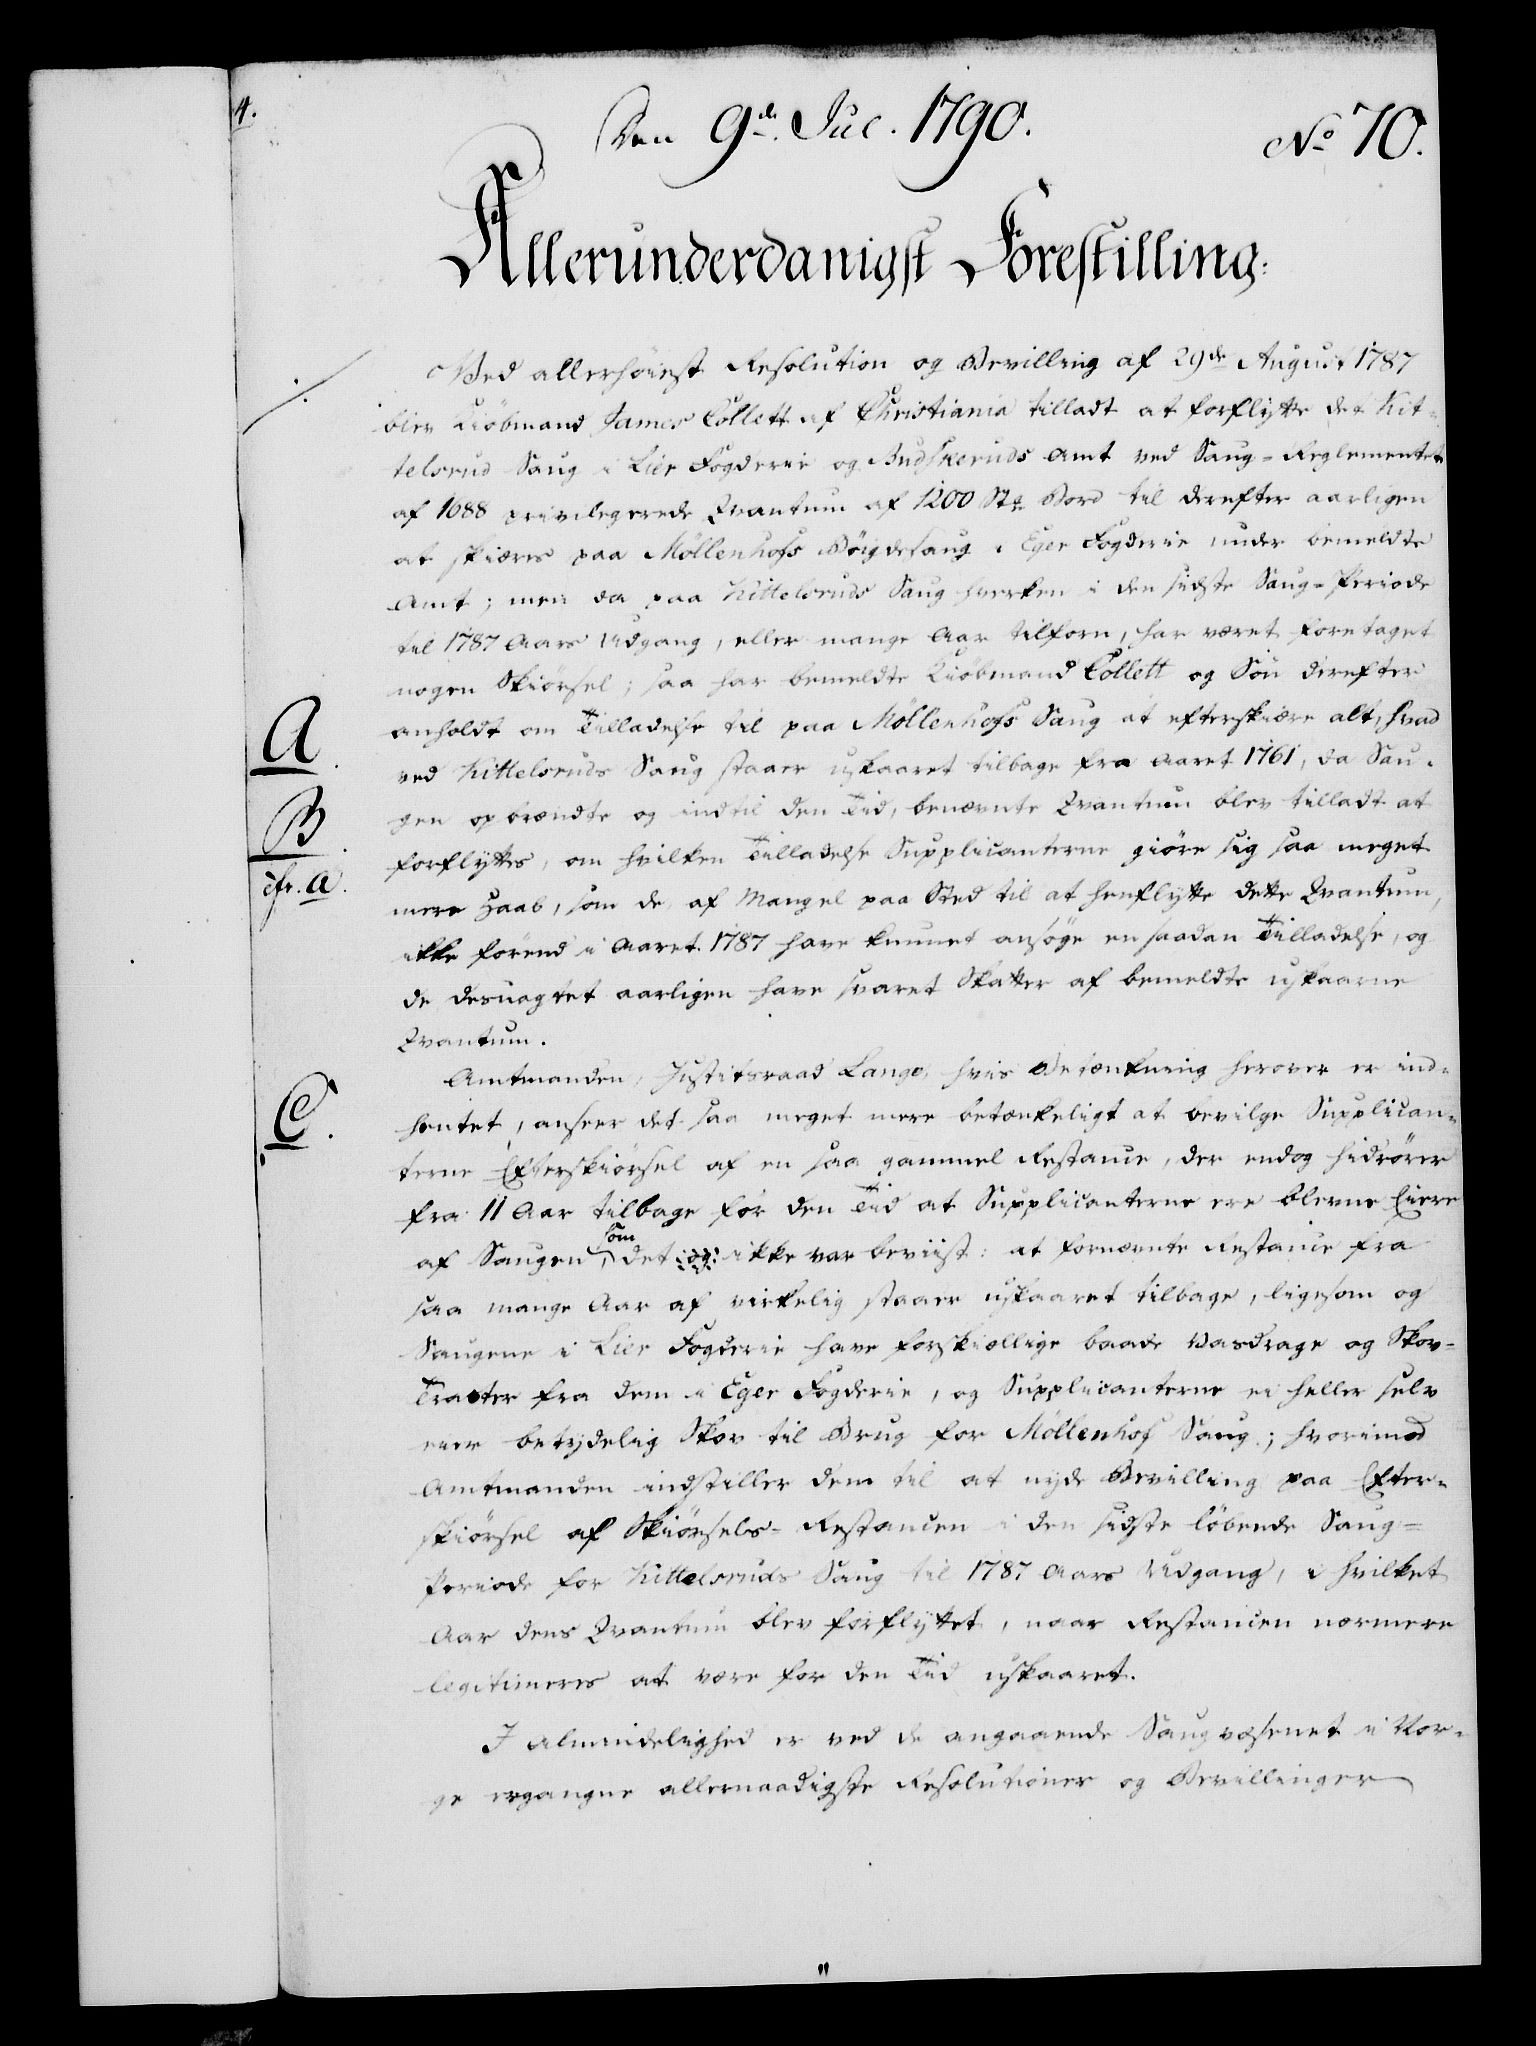 4.
Den 9de Jul. 1790.
No 70.
Allerunderdanigst Forestilling:
Ved allerhöiest Resolution og Bevilling af 29de August 1787
blev Kiöbmand James Collett af Christiania tilladt at forflytte det Kit-
telsrud Saug i Lier Fogderie og Buskeruds Amt ved Saug-Reglementet
af 1688 privilegerede Qvantum af 1200 Stk Bord til derefter aarligen
at skiæres paa Möllenhofs Böigdesaug i Eger Fogderie under bemeldte
Amt; men da paa Kittelsruds Saug hverken i den sidste Saug-Periode
til 1787 Aars Udgang, eller mange Aar tilforn, har været foretaget
nogen Skiörsel; saa har bemeldte Kiöbmand Collett og Sön derefter
A.
anholdt om Tilladelse til paa Möllenhofs Saug at efterskiære alt, hvad
ved Kittelsruds Saug staaer uskaaret tilbage fra Aaret 1761, da Sau-
B.
gen opbrændte og indtil den Tid, benævnte Qvantum blev tilladt at
forflyttes, om hvilken Tilladelse Supplicanterne giöre sig saa meget
cfr. a.
mere Haab, som de af Mangel paa Sted til at henflytte dette Qvantum,
ikke förend i Aaret 1787 have kunnet ansöge en saadan Tilladelse, og
de desuagtet aarligen have svaret Skatter af bemeldte uskaarne
Qvantum.
Amtmanden, Justitsraad Lange, hvis Betænkning herover er ind-
C.
hentet, anseer det saa meget mere betænkeligt at bevilge Supplican-
terne Efterskiörsel af en saa gammel Restance, der endog hidrörer
fra 11 Aar tilbage för den Tid at Supplicanterne ere blevne Eiere
som
af Saugen, det og ikke var beviist: at fornævnte Restance fra
saa mange Aar af virkelig staaer uskaaret tilbage, ligesom og
Saugene i Lier Fogderie have forskiællige baade Vasdrage og Skov-
Tracter fra dem i Eger Fogderie, og Supplicanterne ei heller selv
eier betydelig Skov til Brug for Möllenhof Saug; hvorimod
Amtmanden indstiller dem til at nyde Bevilling paa Efter-
skiörsel af Skiörsels-Restancen i den sidste löbende Saug-
Periode for Kittelsruds Saug til 1787 Aars Udgang, i hvilket
Aar dens Qvantum blev forflyttet, naar Restancen nærmere
legitimeres at være for den Tid uskaaret.
I Almindelighed er ved de angaaende Saugvæsenet i Nor-
ge ergangne allernaadigste Resolutioner og Bevillinger